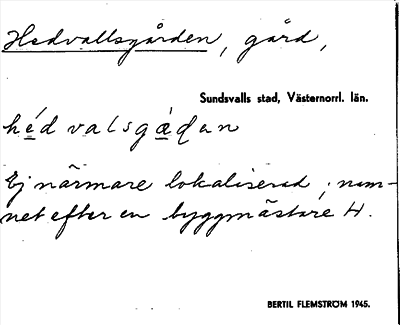 Hedvallsgården, gård,
Sundsvalls stad, Västernorrl. län.
hédvalsgàḍan
Ej närmare lokaliserad; nam-
net efter en byggmästare H.
BERTIL FLEMSTRÖM 1945.